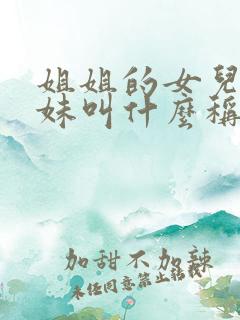 姐姐的女兒
妹叫什麼稱
加甜不加辣
未任同意禁止轉載